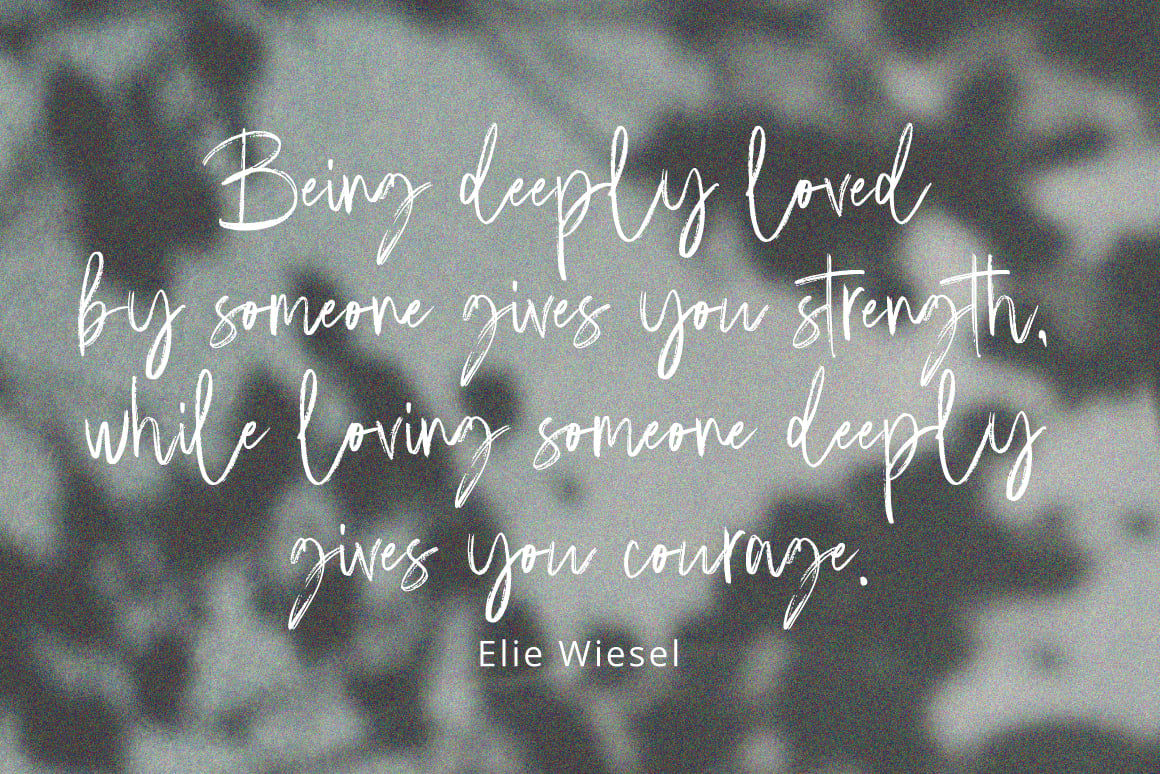 Being deeply loved
by someone gives you strength,
while loving someone deeply
gives you courage.
Elie Wiesel